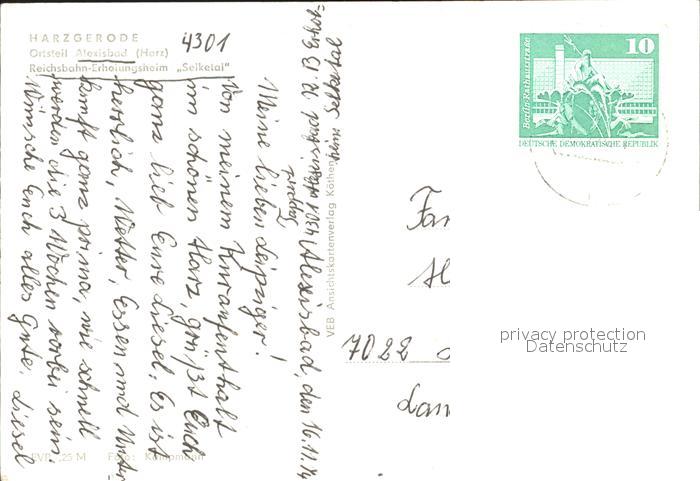 HARZGERODE
Ortsteil Alexisbad (Harz)
Reichsbahn-Erholungsheim „Selketal"
4301
Alexisbad, den 16.11.74
Meine lieben Leipziger!
Von meinem Kuraufenthalt
im schönen Harz, grüßt Euch
ganz lieb Eure Liesel. Es ist
herrlich, Wetter, Essen und Unter
kunft ganz prima, wie schnell
werden die 3 Wochen vorbei sein.
Wünsche Euch alles Gute. Liesel
VEB Ansichtskartenverlag Köthen
25 M Foto:
10
Berlin-Rathausstraße
DEUTSCHE DEMOKRATISCHE REPUBLIK
Fan
Al
7022
Lan
privacy protection
Datenschutz